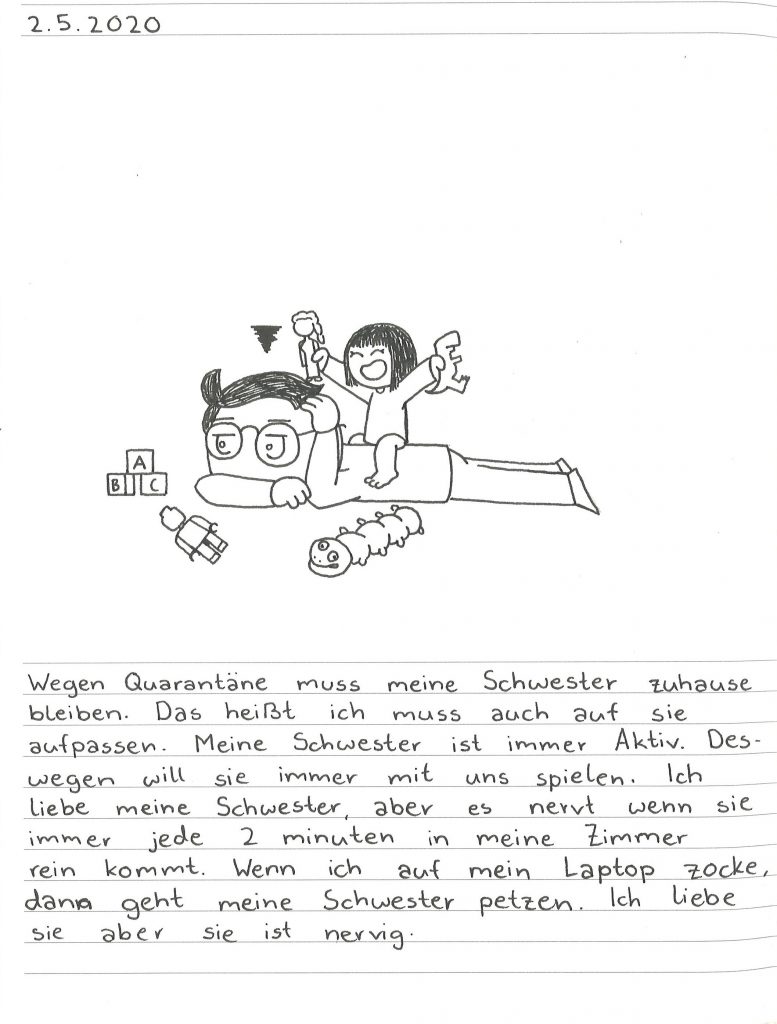 2.5.2020
A
B C
Wegen Quarantäne muss meine Schwester zuhause
bleiben. Das heißt ich muss auch auf sie
aufpassen. Meine Schwester ist immer Aktiv. Des-
wegen will sie immer mit uns spielen. Ich
liebe meine Schwester, aber es nervt wenn sie
immer jede 2 minuten in meine Zimmer
rein kommt. Wenn ich auf mein Laptop zocke,
dann geht meine Schwester petzen. Ich liebe
sie aber sie ist nervig.